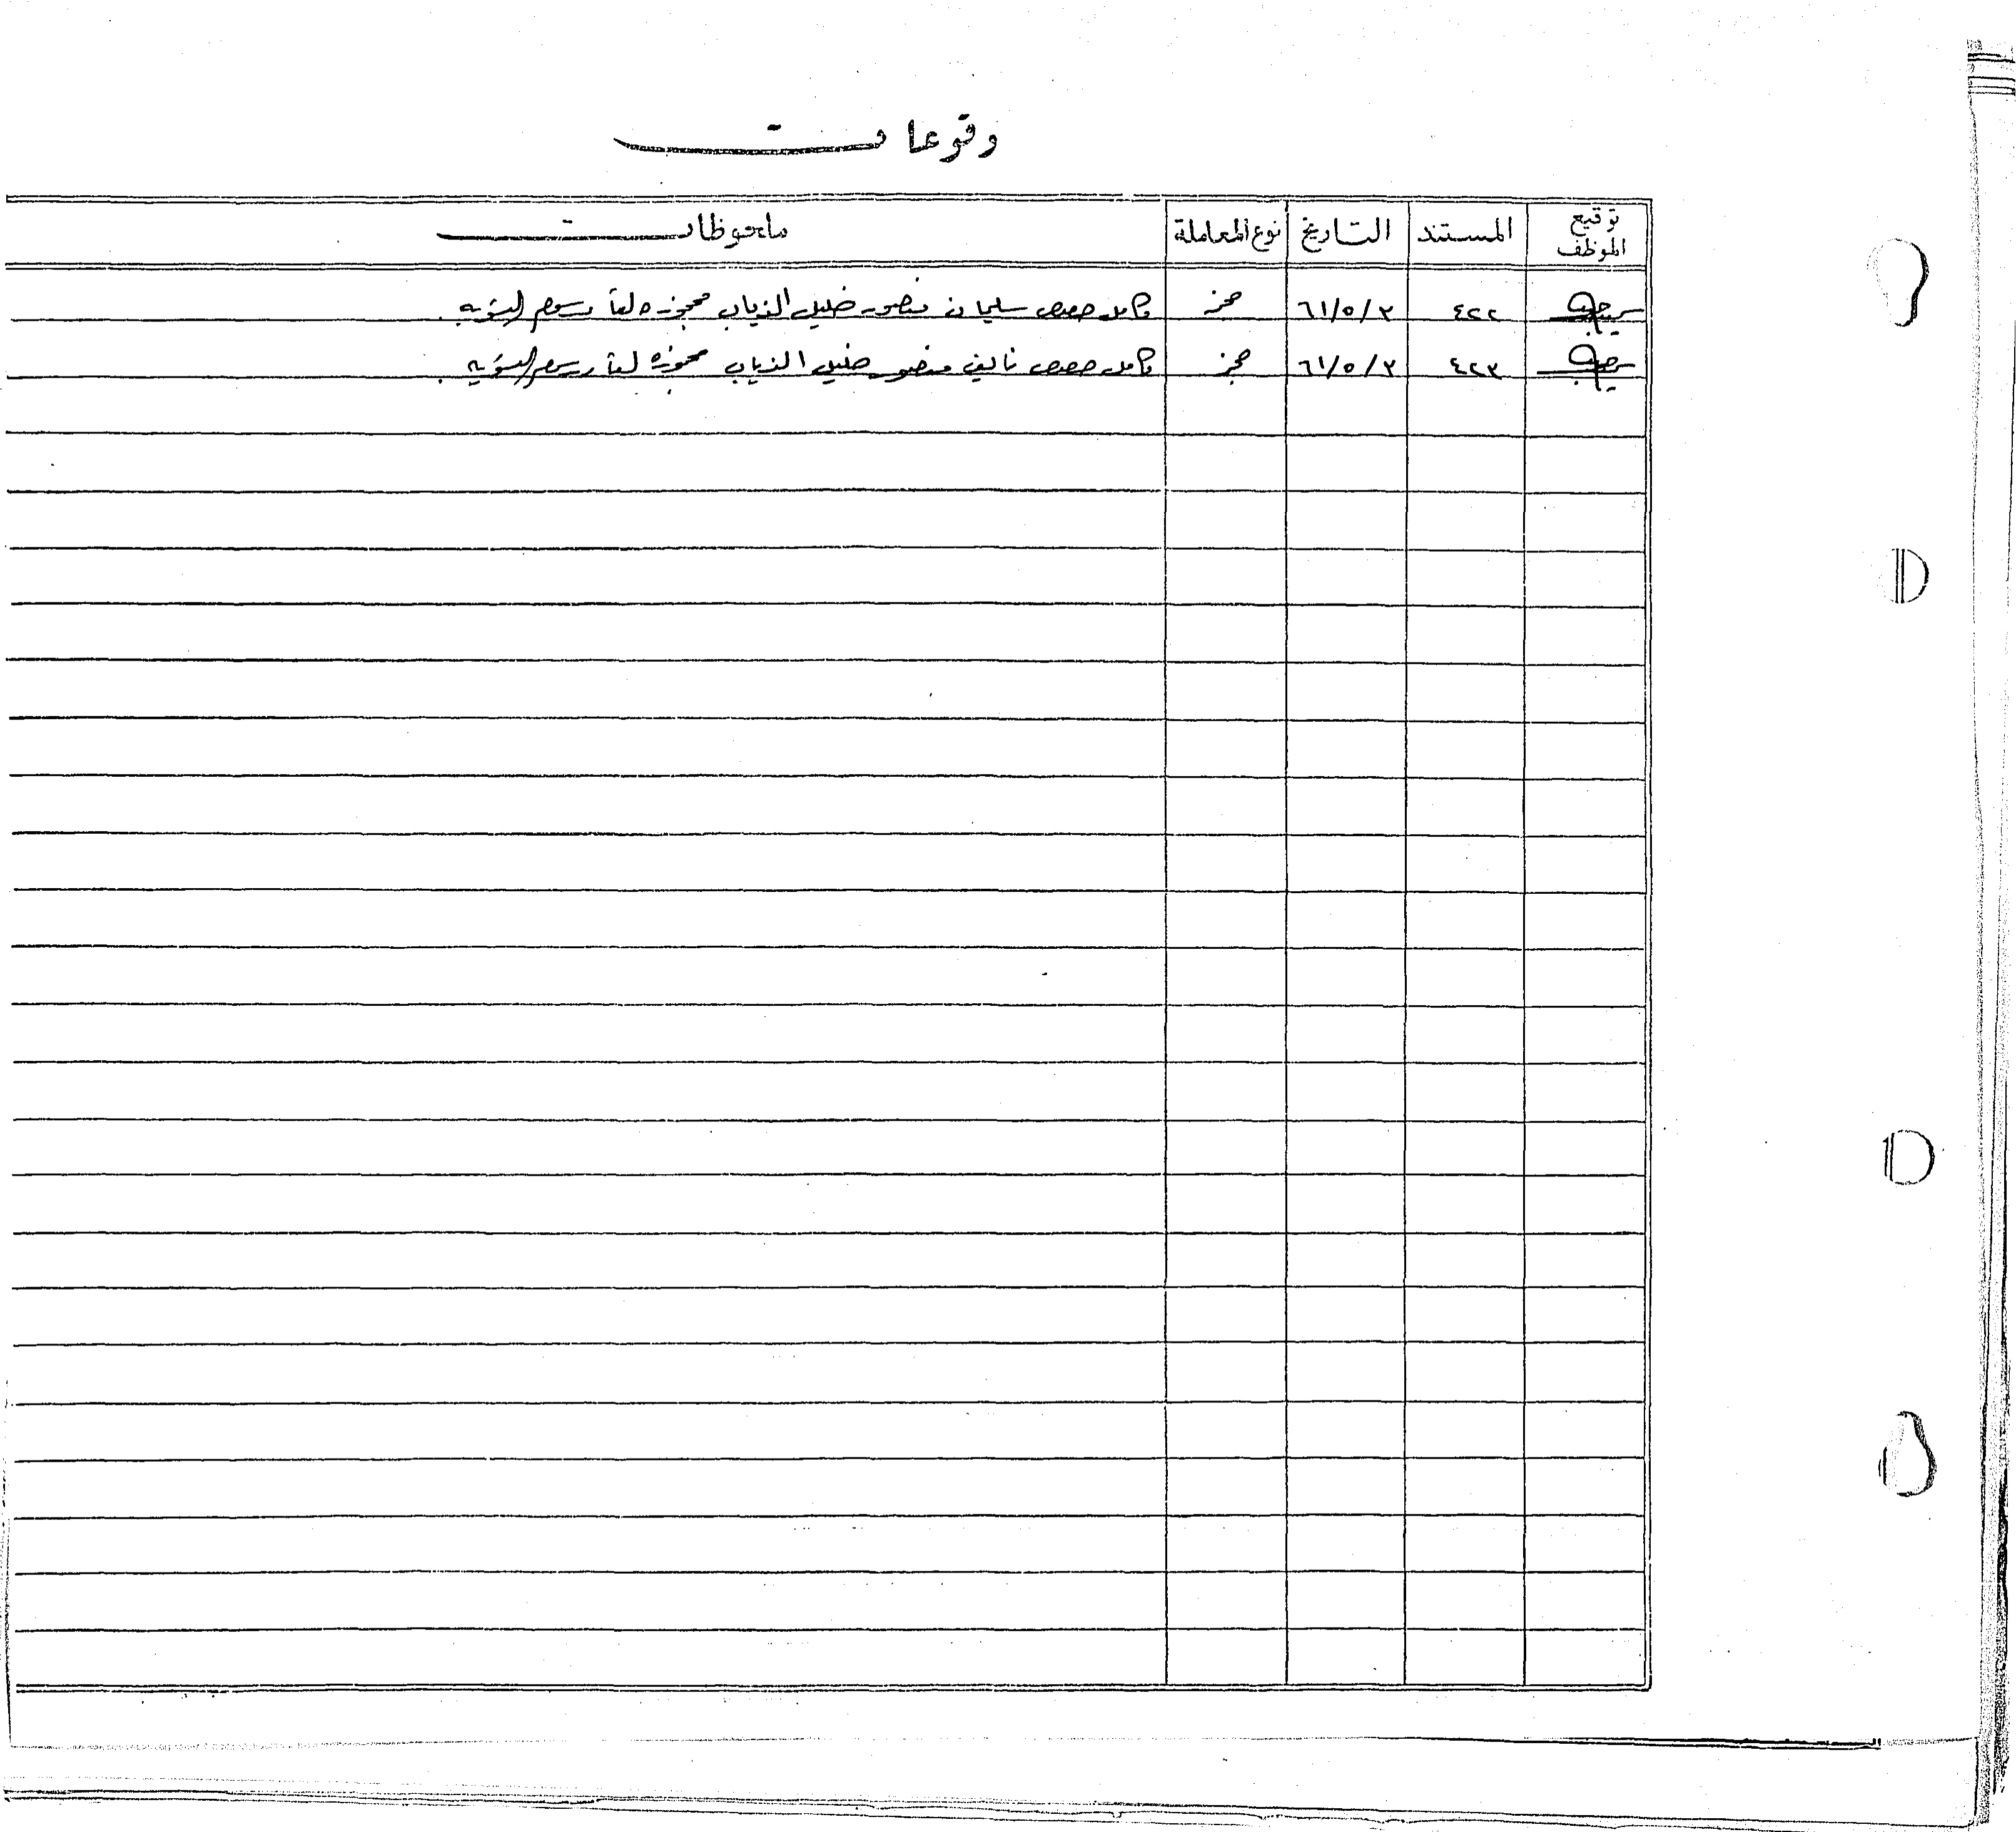 وقوعات
توقيع الموظف المستند التاريخ نوع المعاملة ملحوظات
٤٢٢ ٦١/٥/٣ حجز كامل حصص سليمان منصور خليل الذياب محجوزه لقاء رسوم التسويه
٤٢٣ ٦١/٥/٣ حجز كامل حصص نايف منصور خليل الذياب محجوزه لقاء رسوم التسويه